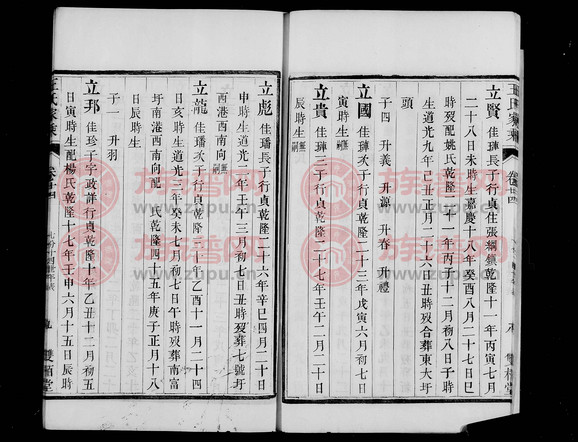 立賢 佳璉長子行貞住張綱鎮乾隆十一年丙寅七月
二十八日未時生嘉慶十八年癸酉八月二十七日巳
時歿配姚氏乾隆十一年丙寅十二月初八日子時
生道光九年己丑正月二十六日丑時歿合葬東大圩
頭
子四 升義 升源 升春 升禮
立國 佳璉次子行貞乾隆二十三年戊寅六月七日
寅時生無嗣
立貴 佳璉三子行貞乾隆二十七年壬午二月二十日
辰時生無嗣
王氏家乘
卷之四
雙槐堂
立彪 佳璠長子行貞乾隆二十六年辛巳四月二十日
申時生道光二年壬午三月初七日丑時歿葬七號圩
西港西南向無嗣
立龍 佳璠次子行貞乾隆三十年乙酉十一月二十四
日亥時生道光三年癸未七月初七日午時歿葬南富
圩南港西南向配 氏乾隆四十五年庚子正月十八
日辰時生
子一 升羽
立邦 佳珍子字政詳行貞乾隆十年乙丑十二月初五
日寅時生配楊氏乾隆十七年壬申六月十五日辰時
王氏家乘
卷之四
九
雙槐堂
族譜網
www.zupu.cn